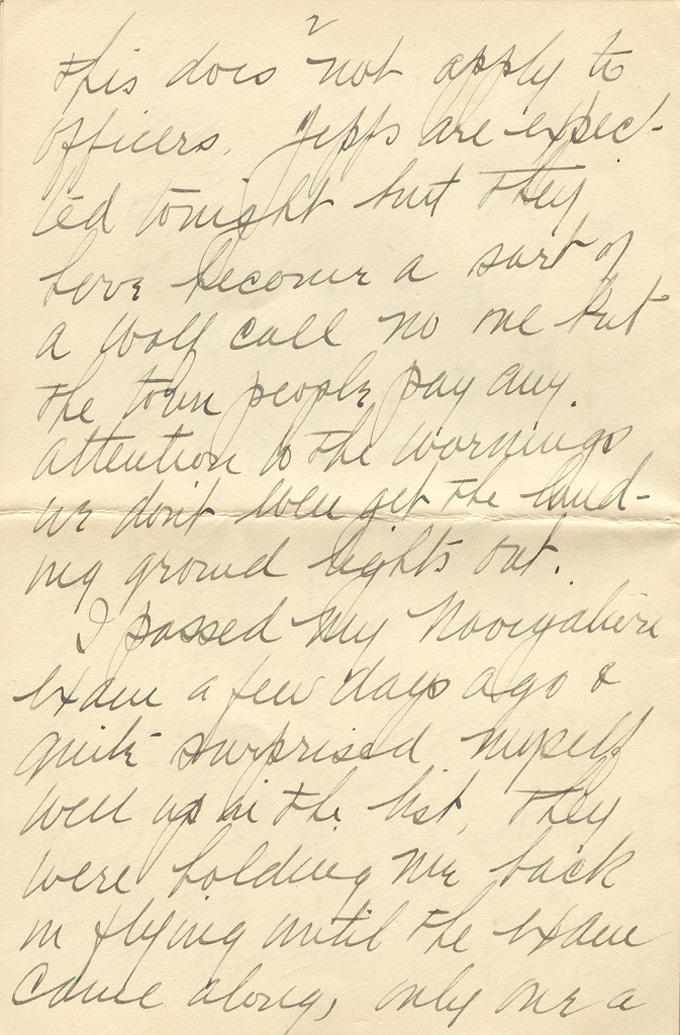 2
this does not apply to
officers. Zepps are expec-
ted tonight but they
have become a sort of
a wolf call no one but
the town people pay any
attention to the warnings
we don't even get the land-
ing ground lights out.
I passed my Navigation
exam a few days ago &
quite surprised myself
well up in the list, they
were holding me back
in flying until the exam
came along, only one a